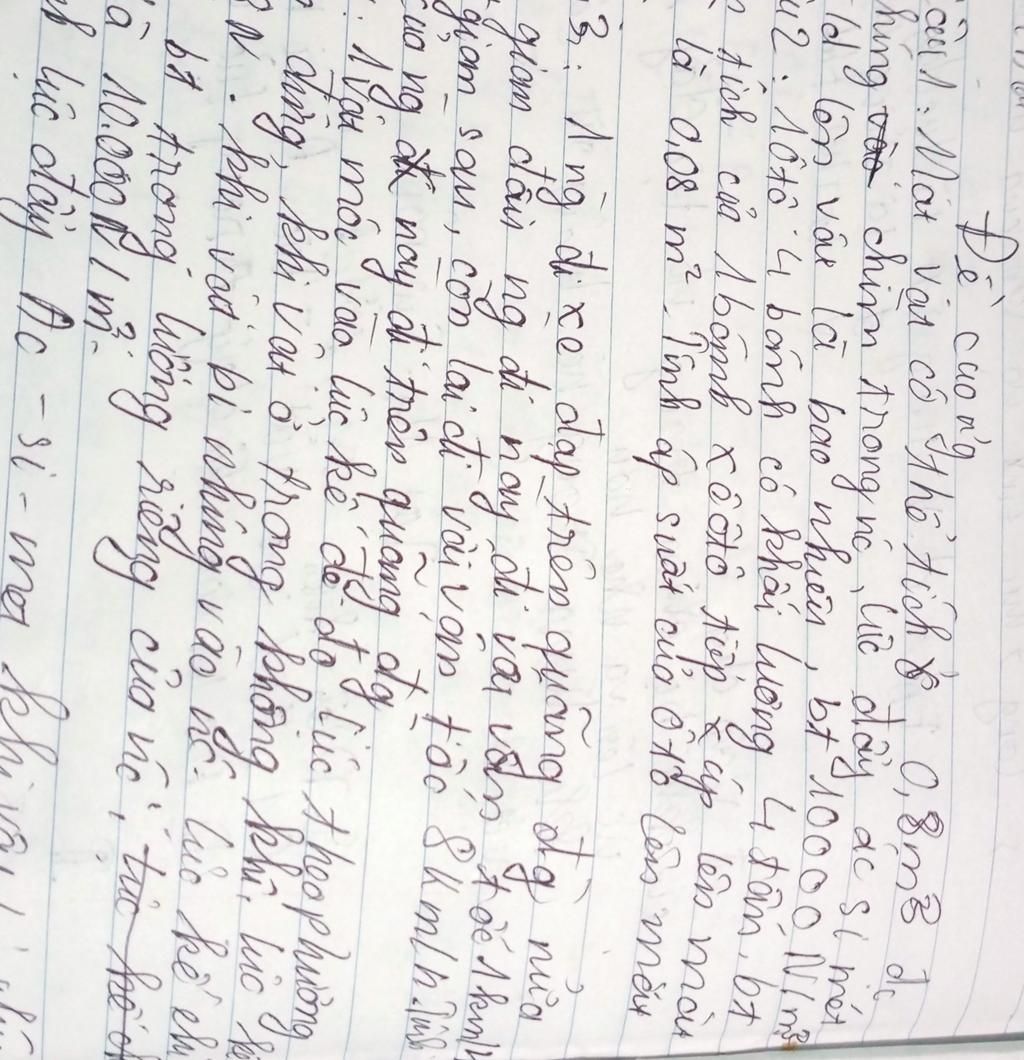 Đề cương
Câu 1: Một vật có thể tích 0,8m3 đc
nhúng chìm trong nc, lực đẩy ác si mét
t/d lên vật là bao nhiêu, bt 10000 N/m3
u 2: 1 ôtô 4 bánh có khối lượng 4 tấn, bt
tích của 1 bánh xe ôtô tiếp xúc lên mặt
là 0,08 m². Tính áp suất của ôtô lên mặt
3: 1 ng đi xe đạp trên quãng đg nửa
gian đầu ng đi này đi với vận tốc 1 km/
gian sau, còn lại đi với vận tốc 8 km/h. Tính
của ng đ này đi trên quãng đg
: 1 vật móc vào lực kế để đo lực theo phương
đứng, khi vật ở trong không khí, lực
8 N. khi vật bị nhúng vào nc lực kế chỉ
bt trọng lượng riêng của nc
là 10.000 N/m3.
lực đẩy Ác-si-mét khi vật